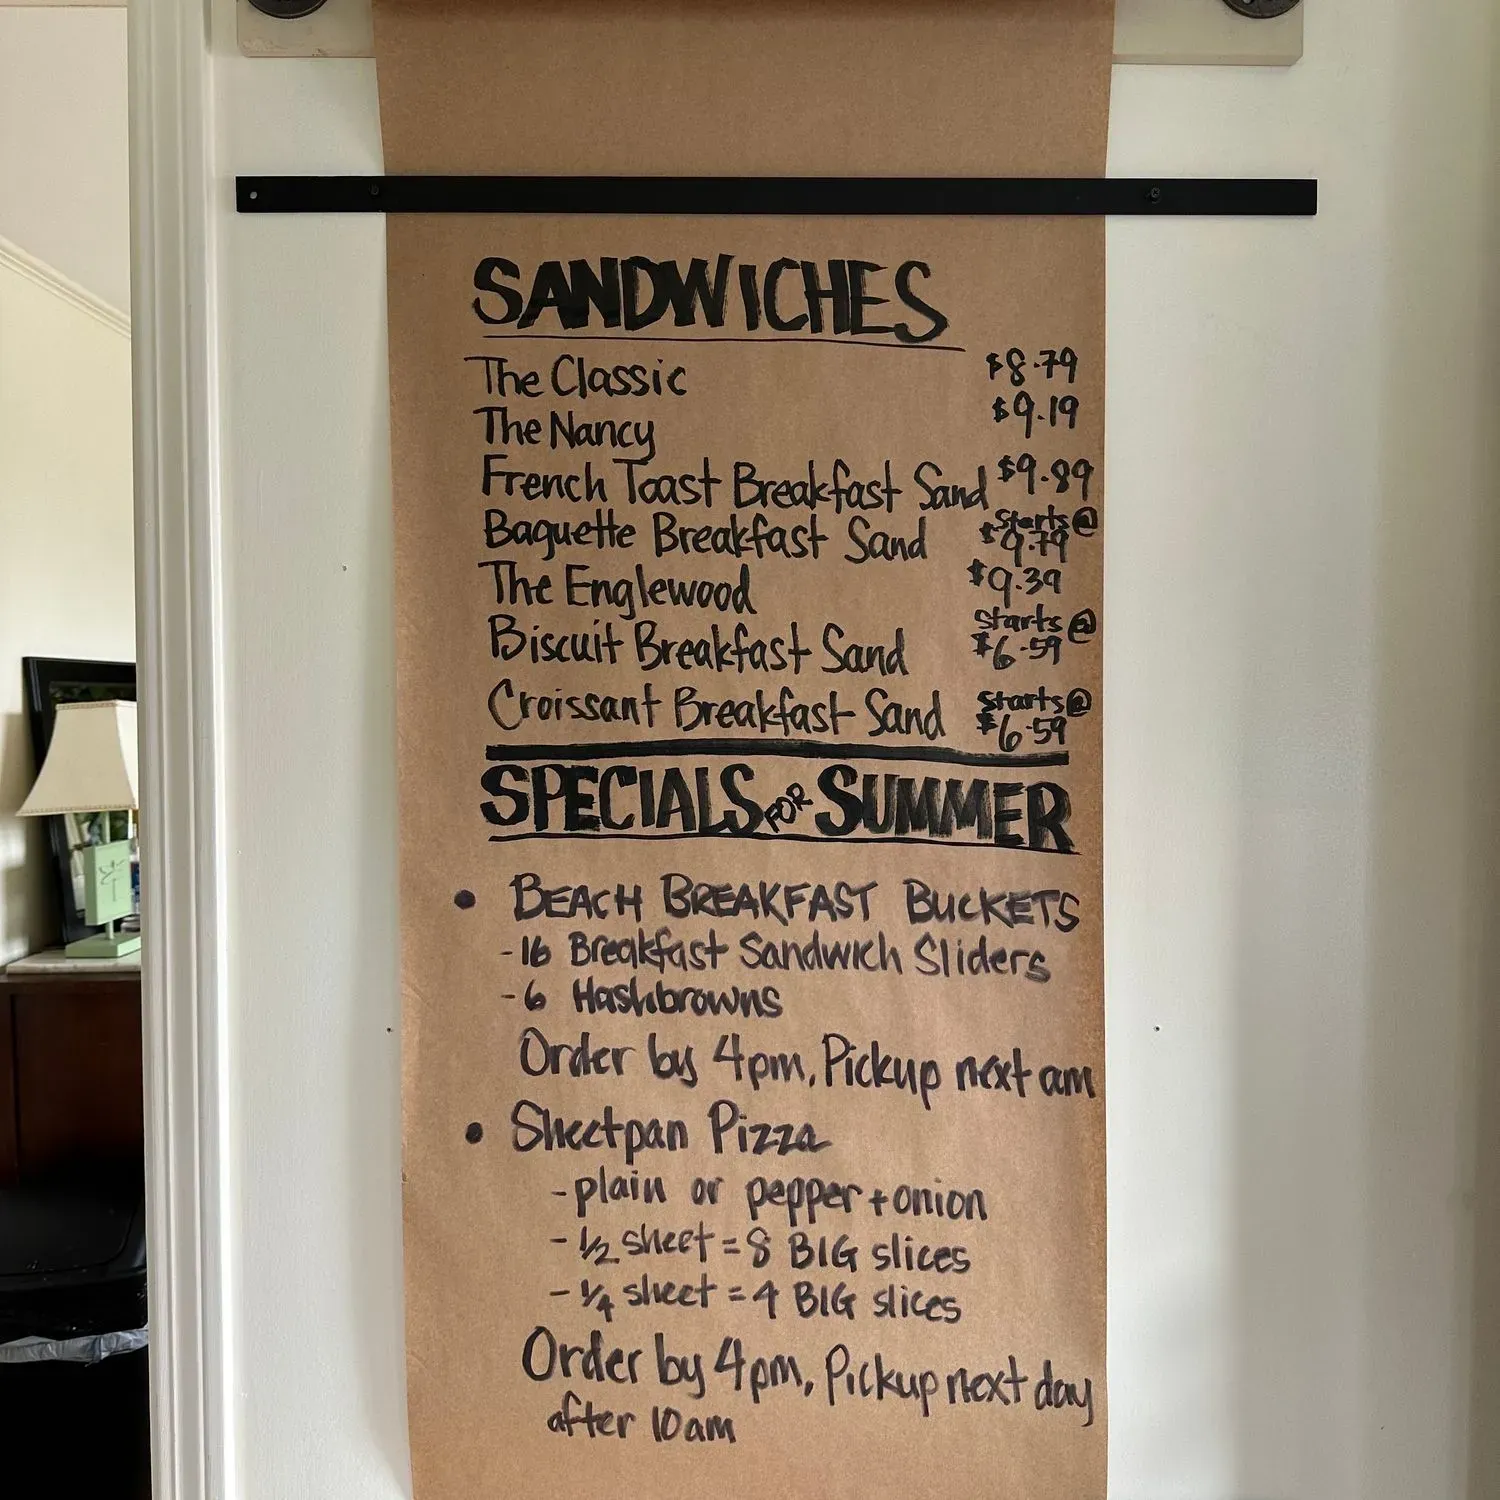 SANDWICHES
The Classic $8.79
The Nancy $9.19
French Toast Breakfast Sand $9.89
Baguette Breakfast Sand Starts @ $9.79
The Englewood $9.39
Biscuit Breakfast Sand Starts @ $6.59
Croissant Breakfast Sand Starts @ $6.59
SPECIALS FOR SUMMER
• BEACH BREAKFAST BUCKETS
- 16 Breakfast Sandwich Sliders
- 6 Hashbrowns
Order by 4pm, Pickup next am
• Sheetpan Pizza
- plain or pepper + onion
- 1/2 sheet = 8 BIG slices
- 1/4 sheet = 4 BIG slices
Order by 4pm, Pickup next day
after 10am